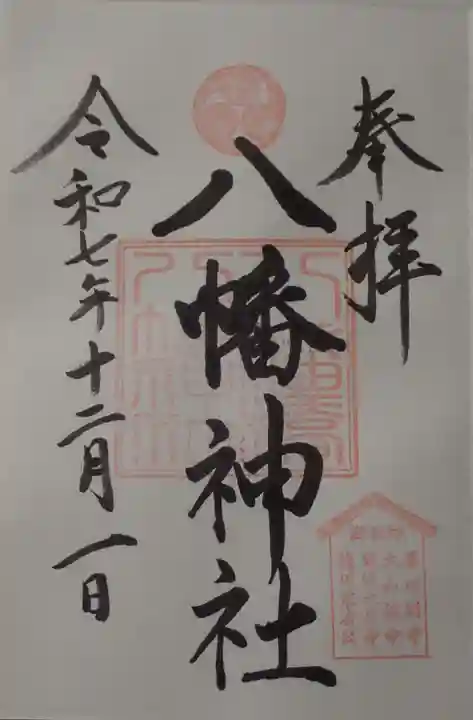 奉拝
八幡神社
令和七年十二月一日